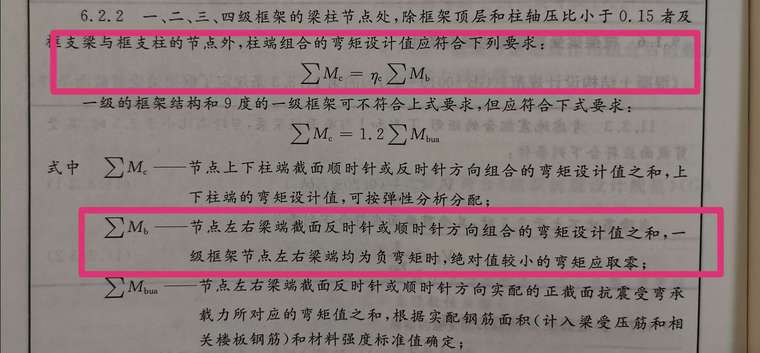 6.2.2 一、二、三、四级框架的梁柱节点处,除框架顶层和柱轴压比小于0.15者及
框支梁与框支柱的节点外,柱端组合的弯矩设计值应符合下列要求:
∑Mc = ηc∑Mb
一级的框架结构和9度的一级框架可不符合上式要求,但应符合下式要求:
∑Mc = 1.2∑Mbua
式中 ∑Mc——节点上下柱端截面顺时针或反时针方向组合的弯矩设计值之和,上
下柱端的弯矩设计值,可按弹性分析分配;
∑Mb——节点左右梁端截面反时针或顺时针方向组合的弯矩设计值之和,一
级框架节点左右梁端均为负弯矩时,绝对值较小的弯矩应取零;
∑Mbua——节点左右梁端截面反时针或顺时针方向实配的正截面抗震受弯承
载力所对应的弯矩值之和,根据实配钢筋面积(计入梁受压筋和相
关楼板钢筋)和材料强度标准值确定;